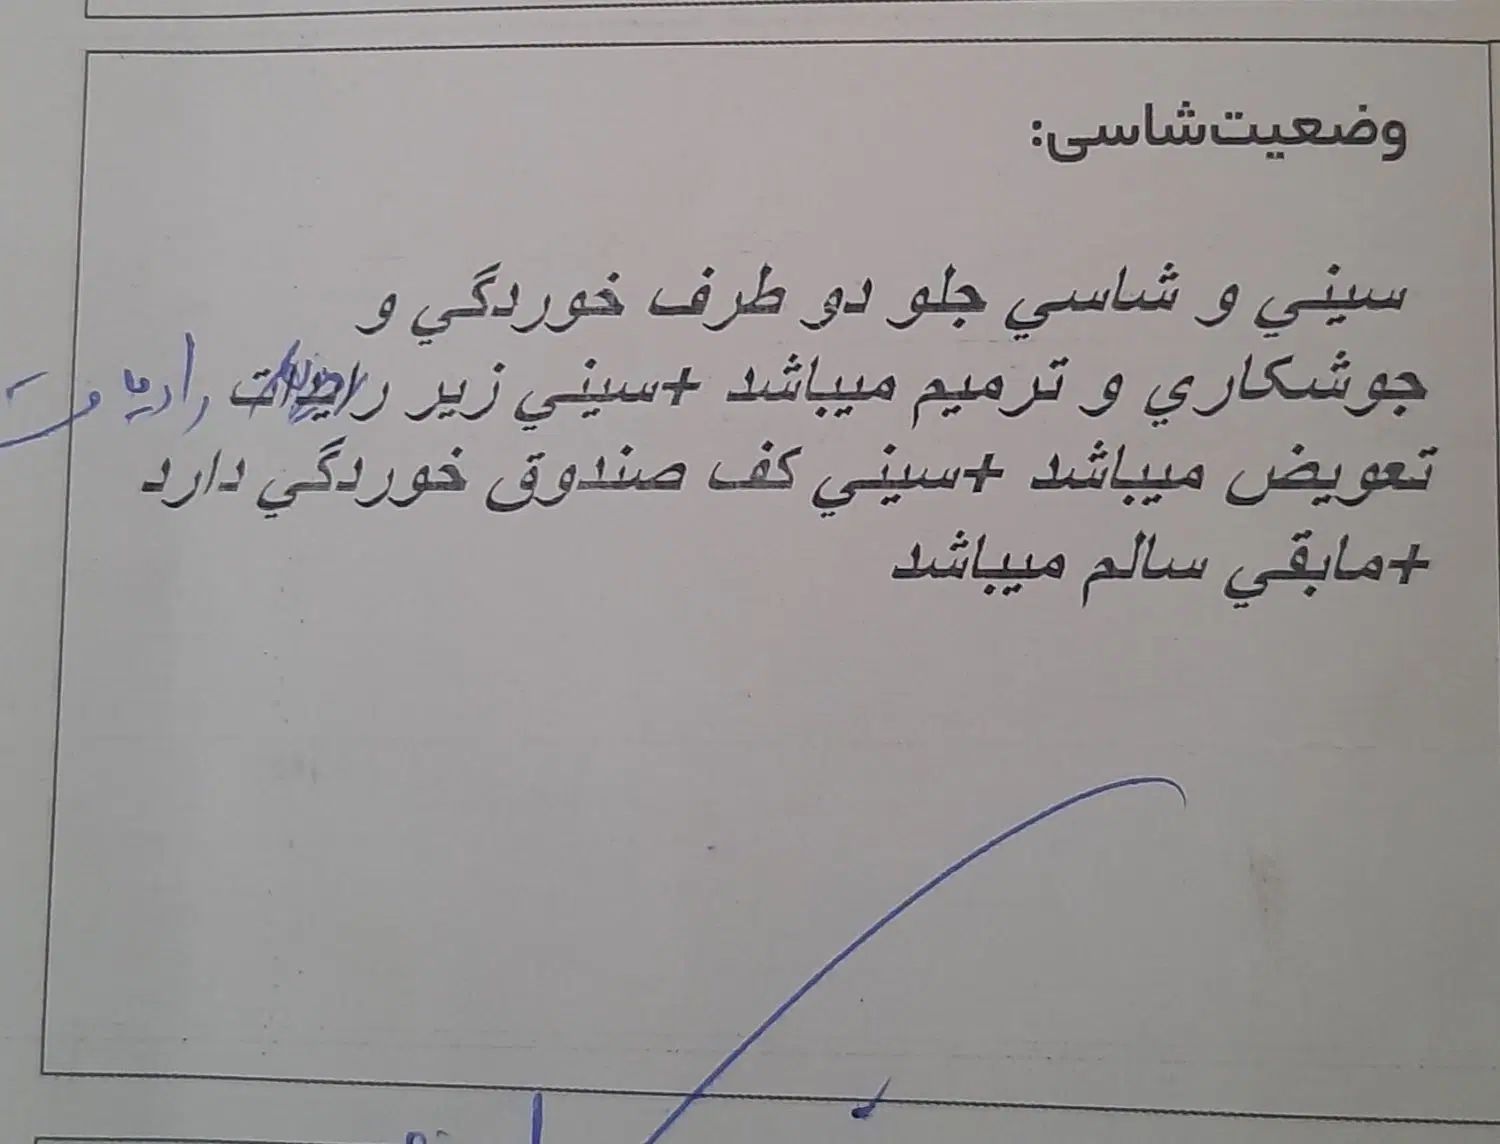 وضعیت‌شاسی:
سيني و شاسي جلو دو طرف خوردگي و
جوشكاري و ترميم ميباشد +سيني زير
تعويض ميباشد +سيني كف صندوق خوردگي دارد
+مابقي سالم ميباشد